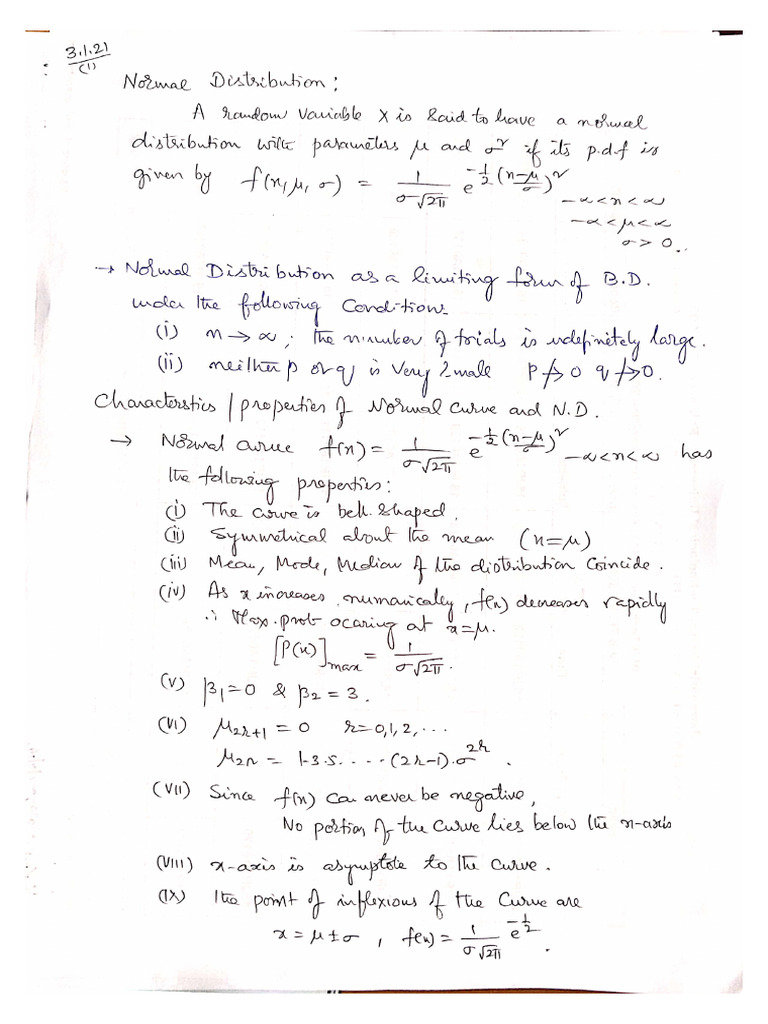 3.1.21
(1)
Normal Distribution:
A random variable X is said to have a normal
distribution with parameters μ and σ² if its p.d.f is
given by f(x, μ, σ) = 1/(σ√2π) e^{-1/2 ((x-μ)/σ)²} -∞<x<∞
-∞<μ<∞
σ>0.
→ Normal Distribution as a limiting form of B.D.
under the following Conditions
(i) n→∞; the number of trials is indefinitely large.
(ii) neither p or q is very small p↛0 q↛0.
Characterstics / properties of Normal Curve and N.D.
→ Normal curve f(x) = 1/(σ√2π) e^{-1/2 ((x-μ)/σ)²} -∞<x<∞ has
the following properties:
(i) The curve is bell shaped.
(ii) Symmetrical about the mean (x=μ)
(iii) Mean, Mode, Median of the distribution Coincide.
(iv) As x increases numarically, f(x) decreases rapidly
∴ Max. prob ocaring at x=μ.
[P(x)]max = 1/(σ√2π).
(v) β₁=0 & β₂=3.
(vi) μ₂ᵣ₊₁ = 0 r=0,1,2,...
μ₂ᵣ = 1.3.5.....(2r-1).σ²ʳ.
(vii) Since f(x) can never be negative,
No portion of the curve lies below the x-axis
(viii) x-axis is asymptote to the curve.
(ix) the point of inflexious of the curve are
x = μ±σ, f(x) = 1/(σ√2π) e^{-1/2}.